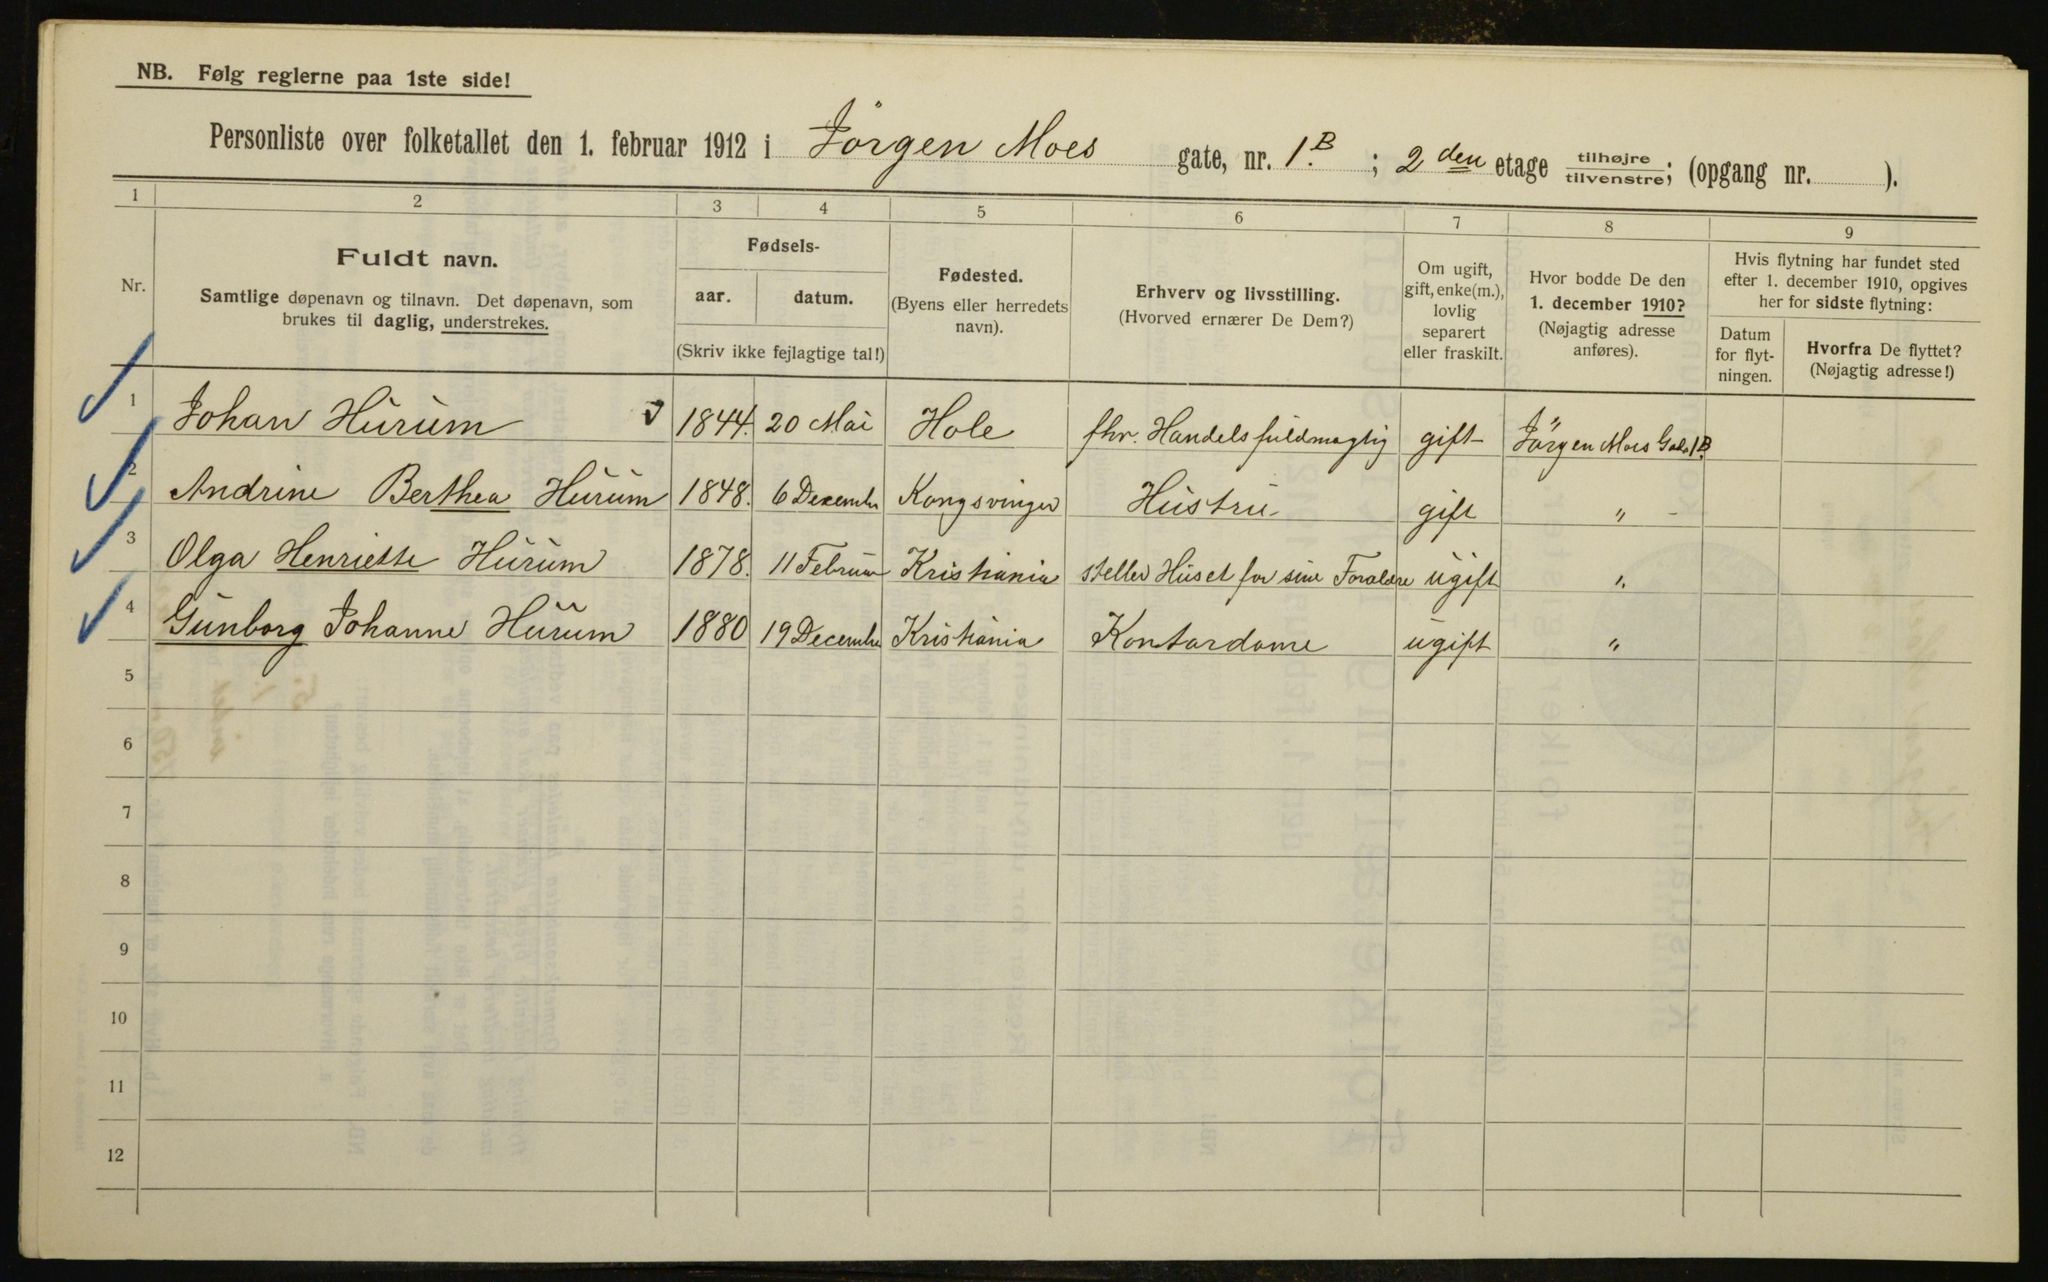 NB. Følg reglerne paa 1ste side!
Personliste over folketallet den 1. februar 1912 i Jörgen Moes gate, nr. 1.B ; 2 den etage tilhøjre/tilvenstre; (opgang nr. ).
1 2 3 4 5 6 7 8 9
Nr.
Fuldt navn.
Samtlige døpenavn og tilnavn. Det døpenavn, som
brukes til daglig, understrekes.
Fødsels-
aar. datum.
(Skriv ikke fejlagtige tal!)
Fødested.
(Byens eller herredets
navn).
Erhverv og livsstilling.
(Hvorved ernærer De Dem?)
Om ugift,
gift, enke(m.),
lovlig
separert
eller fraskilt.
Hvor bodde De den
1. december 1910?
(Nøjagtig adresse
anføres).
Hvis flytning har fundet sted
efter 1. december 1910, opgives
her for sidste flytning:
Datum
for flyt-
ningen.
Hvorfra De flyttet?
(Nøjagtig adresse!)
1 Johan Hurum 1844. 20 Mai Hole fhr. Handelsfuldmægtig gift Jörgen Moes Gade 1B.
2 Andrine Berthea Hurum 1848. 6 December Kongsvinger Hustru gift "
3 Olga Henriette Hurum 1878. 11 Februar Kristiania steller Huset for sine Forældre ugift "
4 Gunborg Johanne Hurum 1880 19 December Kristiania Kontordame ugift "
5
6
7
8
9
10
11
12